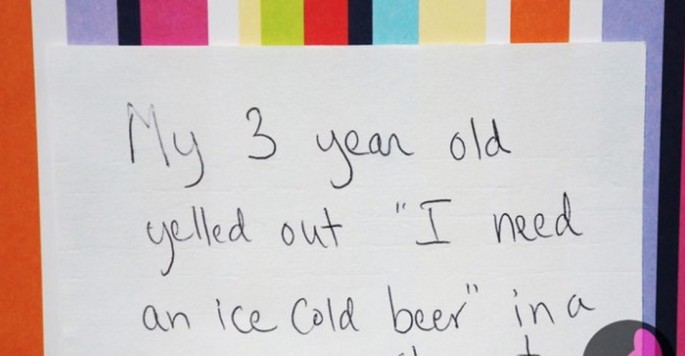 My 3 year old
yelled out "I need
an ice cold beer" in a